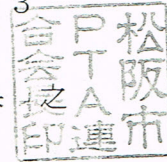 3
之
松阪市
PTA連
合会長印